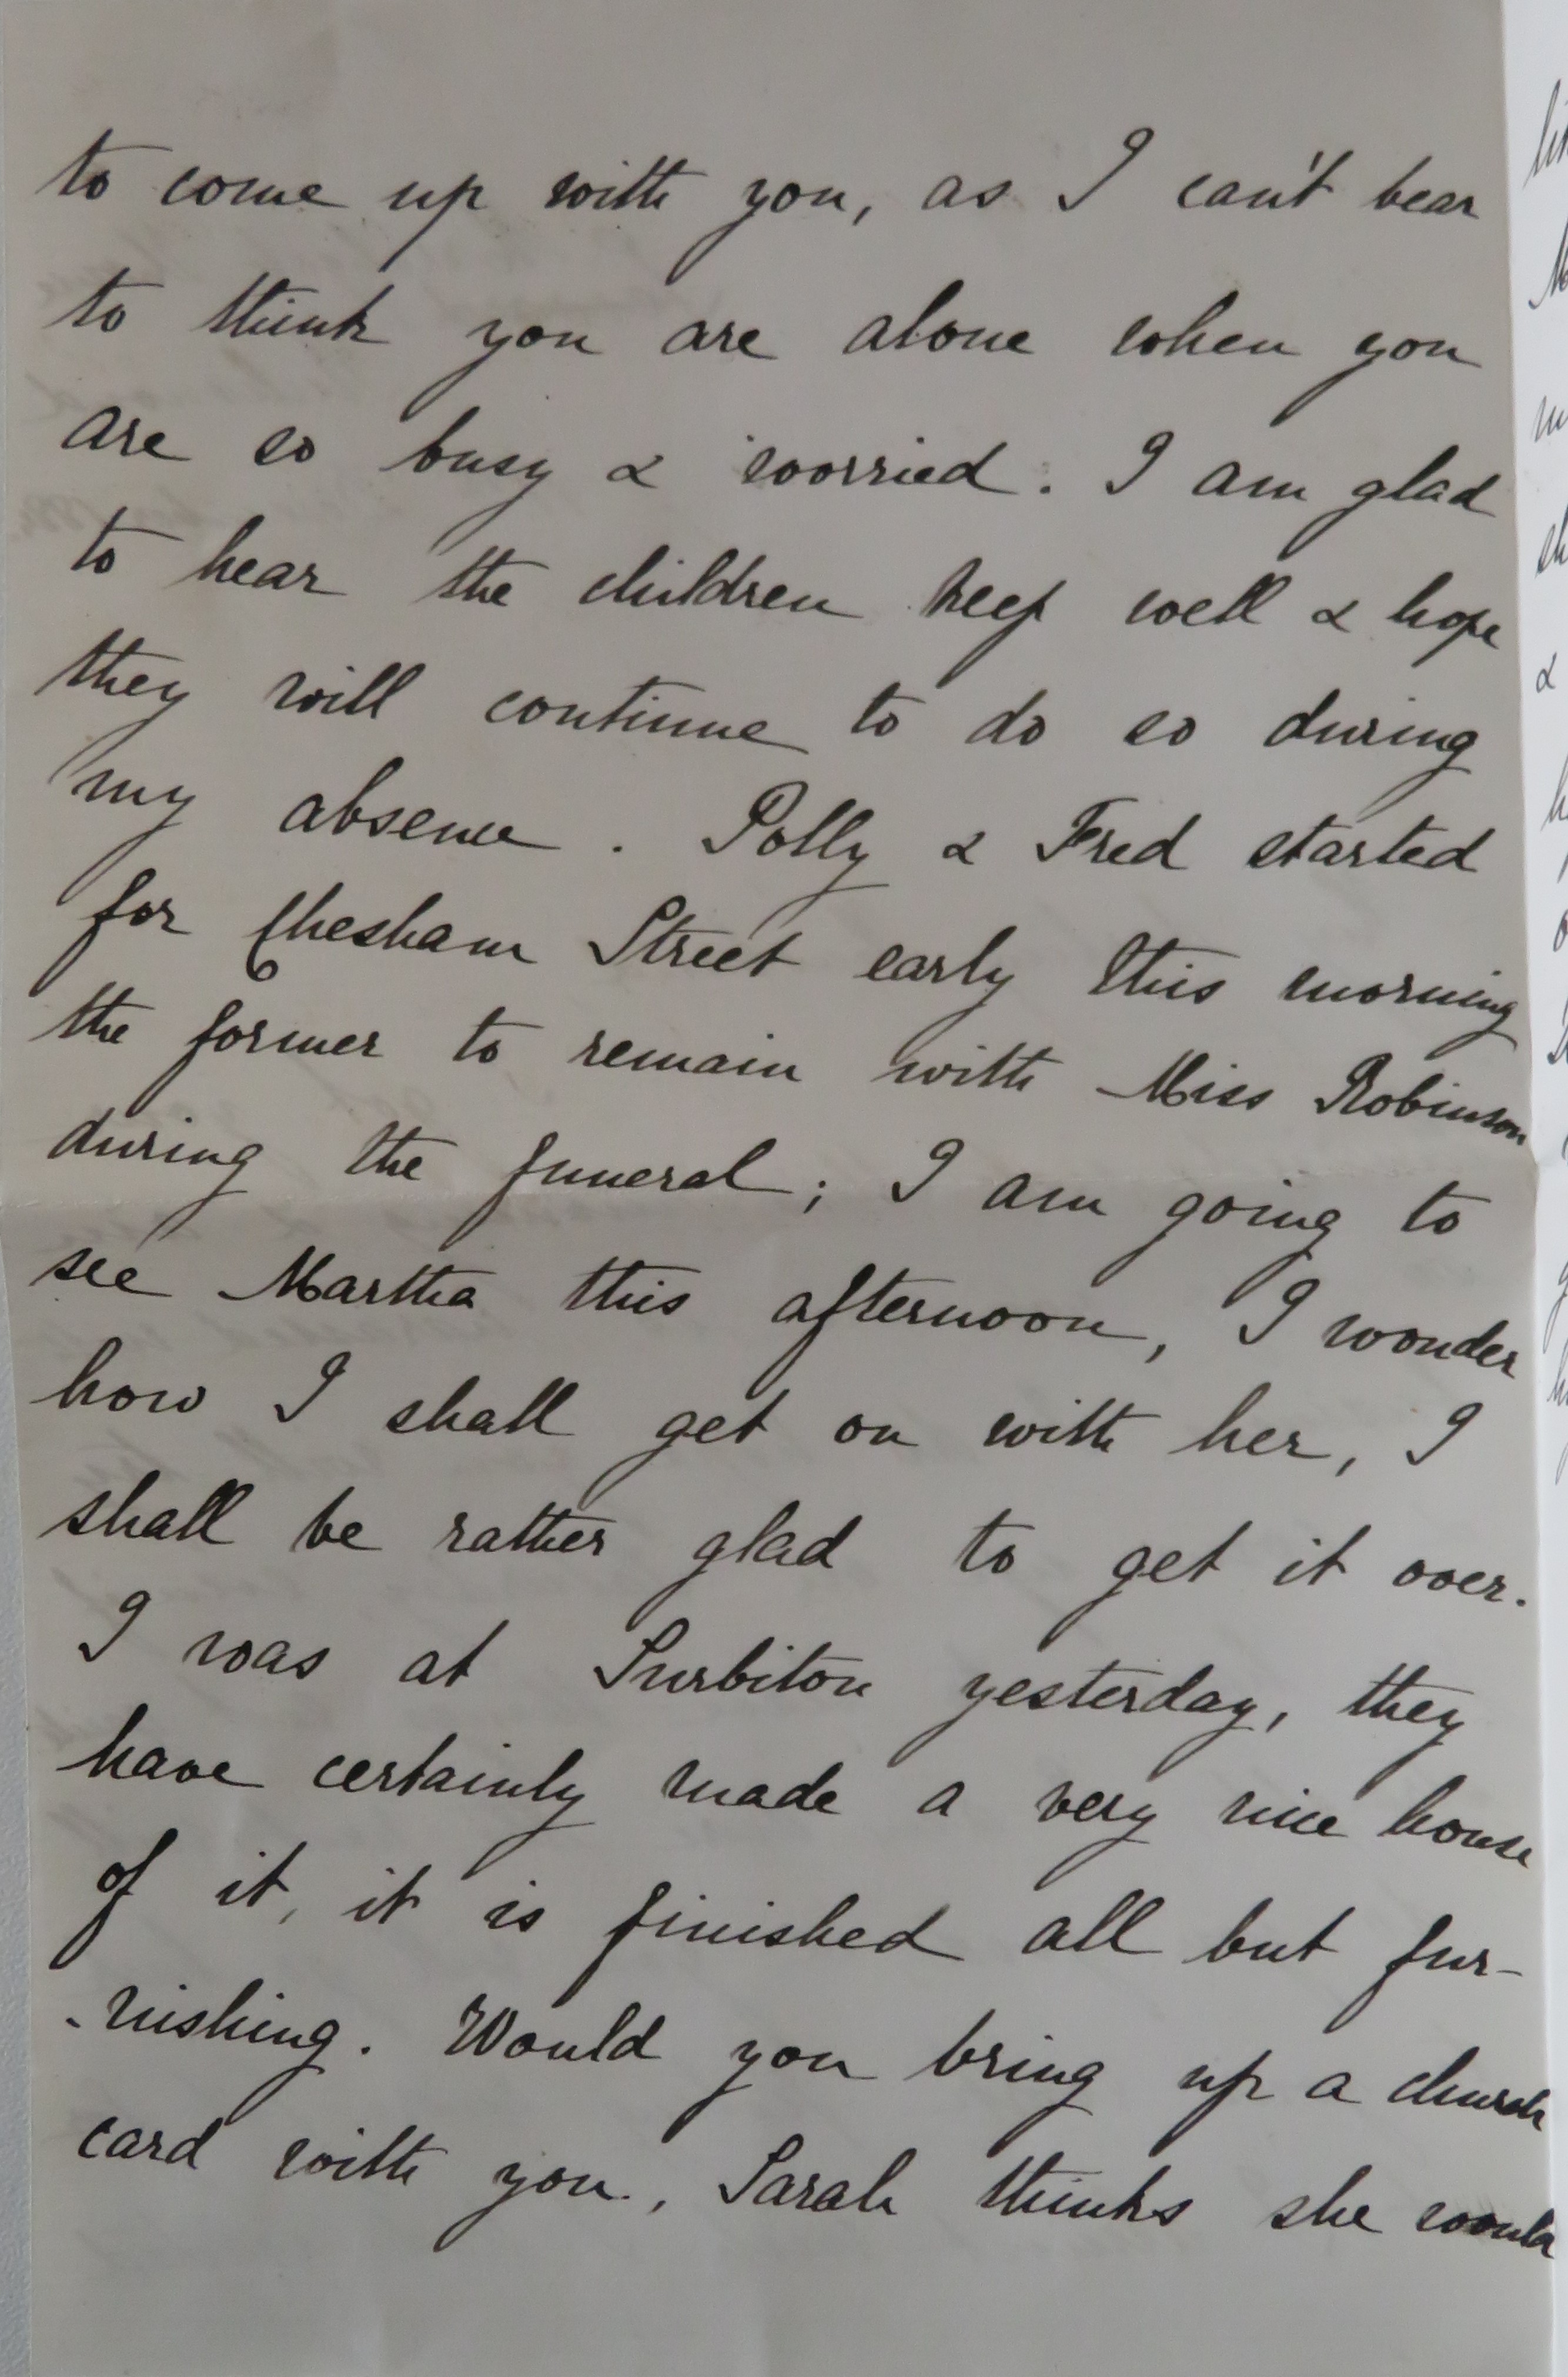 to come up with you, as I can't bear
to think you are alone when you
are so busy & worried. I am glad
to hear the children keep well & hope
they will continue to do so during
my absence. Polly & Fred started
for Chesham Street early this morning
the former to remain with Miss Robinson
during the funeral; I am going to
see Martha this afternoon, I wonder
how I shall get on with her, I
shall be rather glad to get it over.
I was at Surbiton yesterday, they
have certainly made a very nice house
of it, it is finished all but fur-
-nishing. Would you bring up a church
card with you, Sarah thinks she would